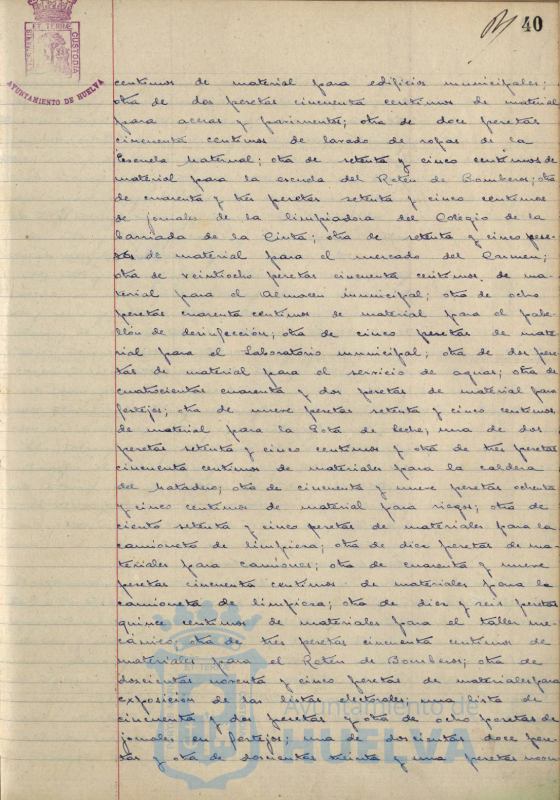 40
AYUNTAMIENTO DE HUELVA
centimos de material para edificios municipales;
otra de dos pesetas cincuenta centimos de material
para aceras y pavimentos; otra de doce pesetas
cincuenta centimos de lavado de ropas de la
Escuela Maternal; otra de setenta y cinco centimos de
material para la escuela del Retén de Bomberos; otra
de cuarenta y tres pesetas setenta y cinco centimos
de jornales de la limpiadora del Colegio de la
barriada de la Cinta; otra de setenta y cinco pese-
tas de material para el mercado del Carmen;
otra de veintiocho pesetas cincuenta centimos de ma-
terial para el Almacen municipal; otra de ocho
pesetas cuarenta centimos de material para el pabe-
llón de desinfección; otra de cinco pesetas de mate-
rial para el Laboratorio municipal; otra de dos pese-
tas de material para el servicio de aguas; otra de
cuatrocientas cuarenta y dos pesetas de material para
festejos; otra de nueve pesetas setenta y cinco centimos
de material para la Gota de Leche; una de dos
pesetas setenta y cinco centimos y otra de tres pesetas
cincuenta centimos de materiales para la caldera
del Matadero; otra de cincuenta y nueve pesetas ochenta
y cinco centimos de material para riegos; otra de
ciento setenta y cinco pesetas de materiales para la
camioneta de limpieza; otra de diez pesetas de ma-
teriales para camiones; otra de cuarenta y nueve
pesetas cincuenta centimos de materiales para la
camioneta de limpieza; otra de diez y seis pesetas
quince centimos de materiales para el taller me-
cánico; otra de tres pesetas cincuenta centimos de
materiales para el Retén de Bomberos; otra de
doscientas noventa y cinco pesetas de materiales para
exposición de las listas electorales; una lista de
cincuenta y dos pesetas y otra de ocho pesetas de
jornales en festejos; una de doscientas doce pese-
tas y otra de doscientas treinta y una pesetas noven
Ayuntamiento de
HUELVA